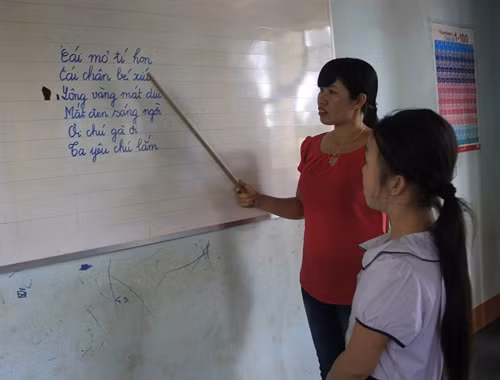 Cái mỏ tí hon
Cái chân bé xíu
Lông vàng mát dịu
Mắt đen sáng ngời
Ơi chú gà ơi
Ta yêu chú lắm
1-100